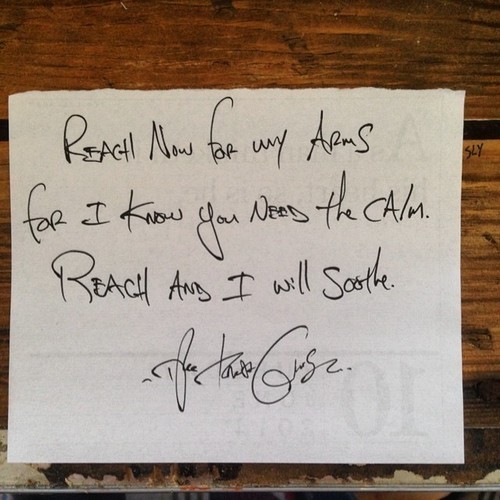 Reach Now for my Arms
for I know you Need the Calm.
Reach And I will Soothe.
SLY
10